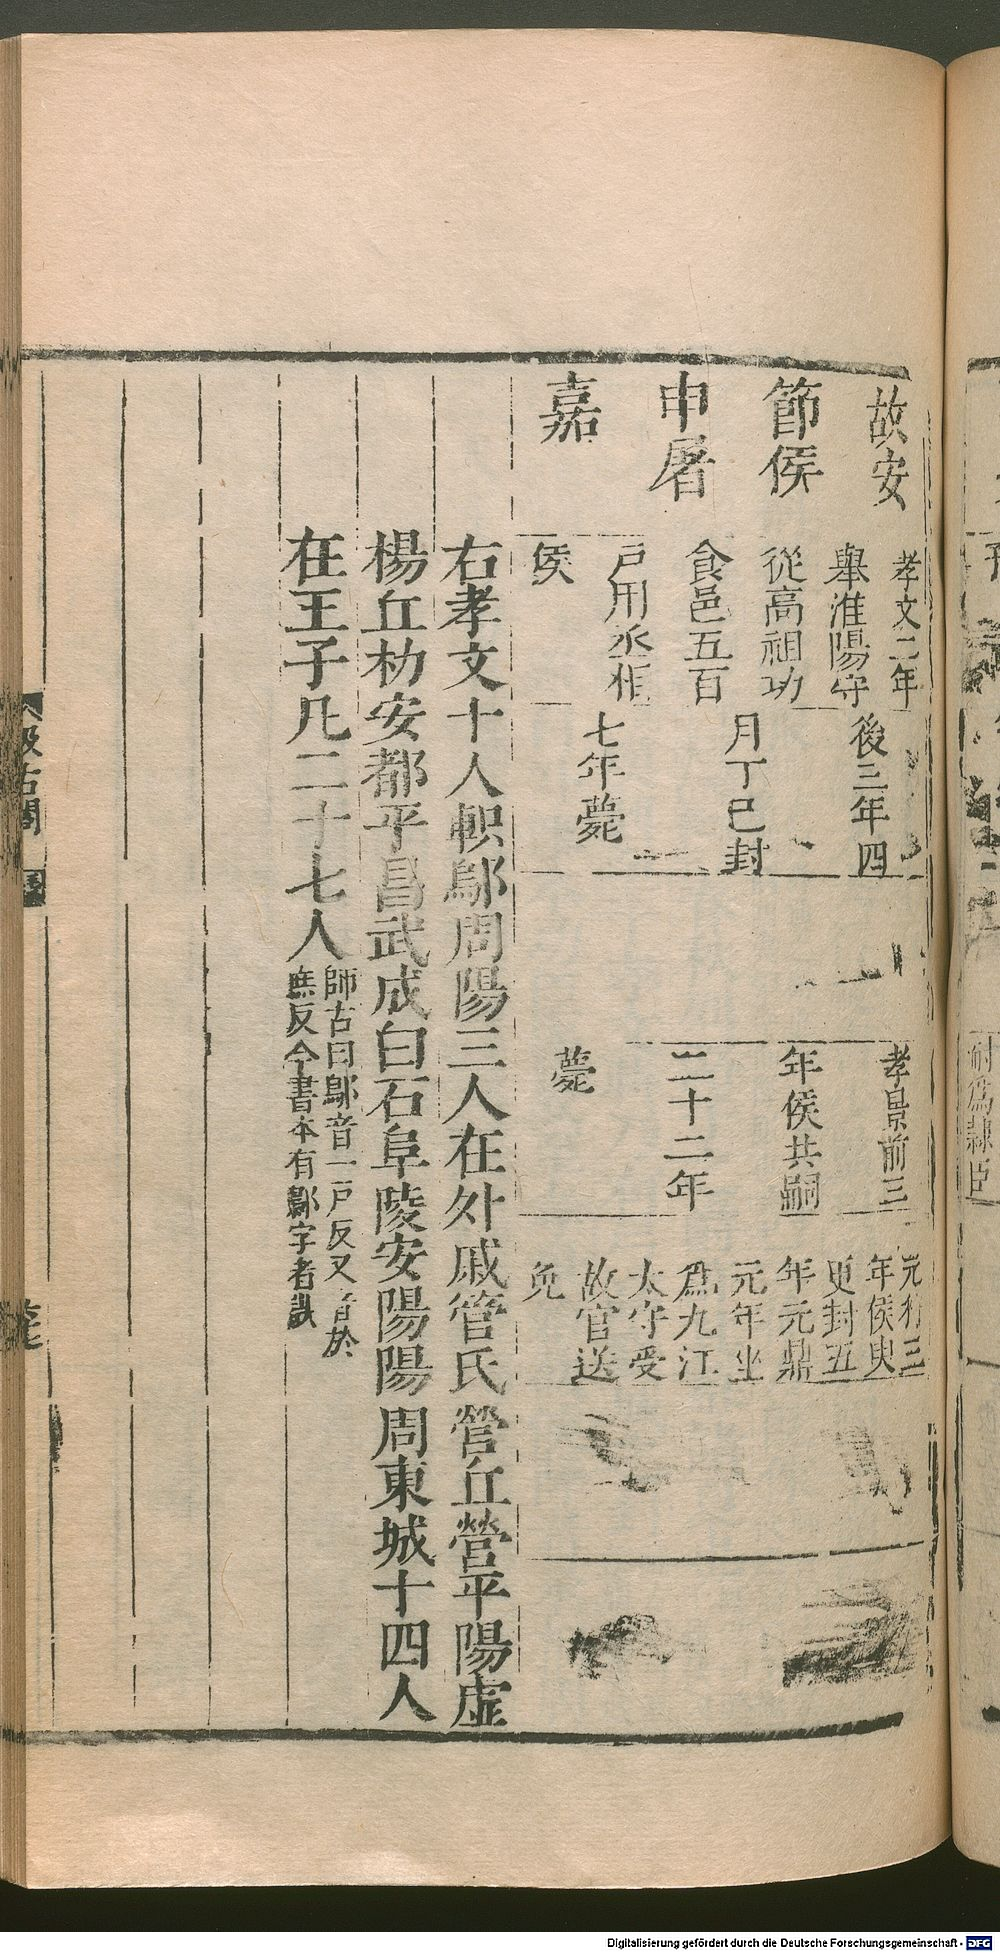 故安
節侯
申屠
嘉
孝文二年
舉淮陽守
從高祖功
食邑五百
戶用丞相
侯
後三年四
月丁巳封
七年薨
孝景前三
年侯共嗣
二十二年
薨
元狩三
年侯臾
更封五
年元鼎
元年坐
爲九江
太守受
故官送
免
右孝文十人軹鄔周陽三人在外戚管氏營丘營平陽虛
楊丘朸安都平昌武成白石阜陵安陽陽周東城十四人
在王子凡二十七人
師古曰鄔音一戶反又音於
庶反今書本有鄡字者誤
汲古閣
耐爲隸臣
Digitalisierung gefördert durch die Deutsche Forschungsgemeinschaft - DFG